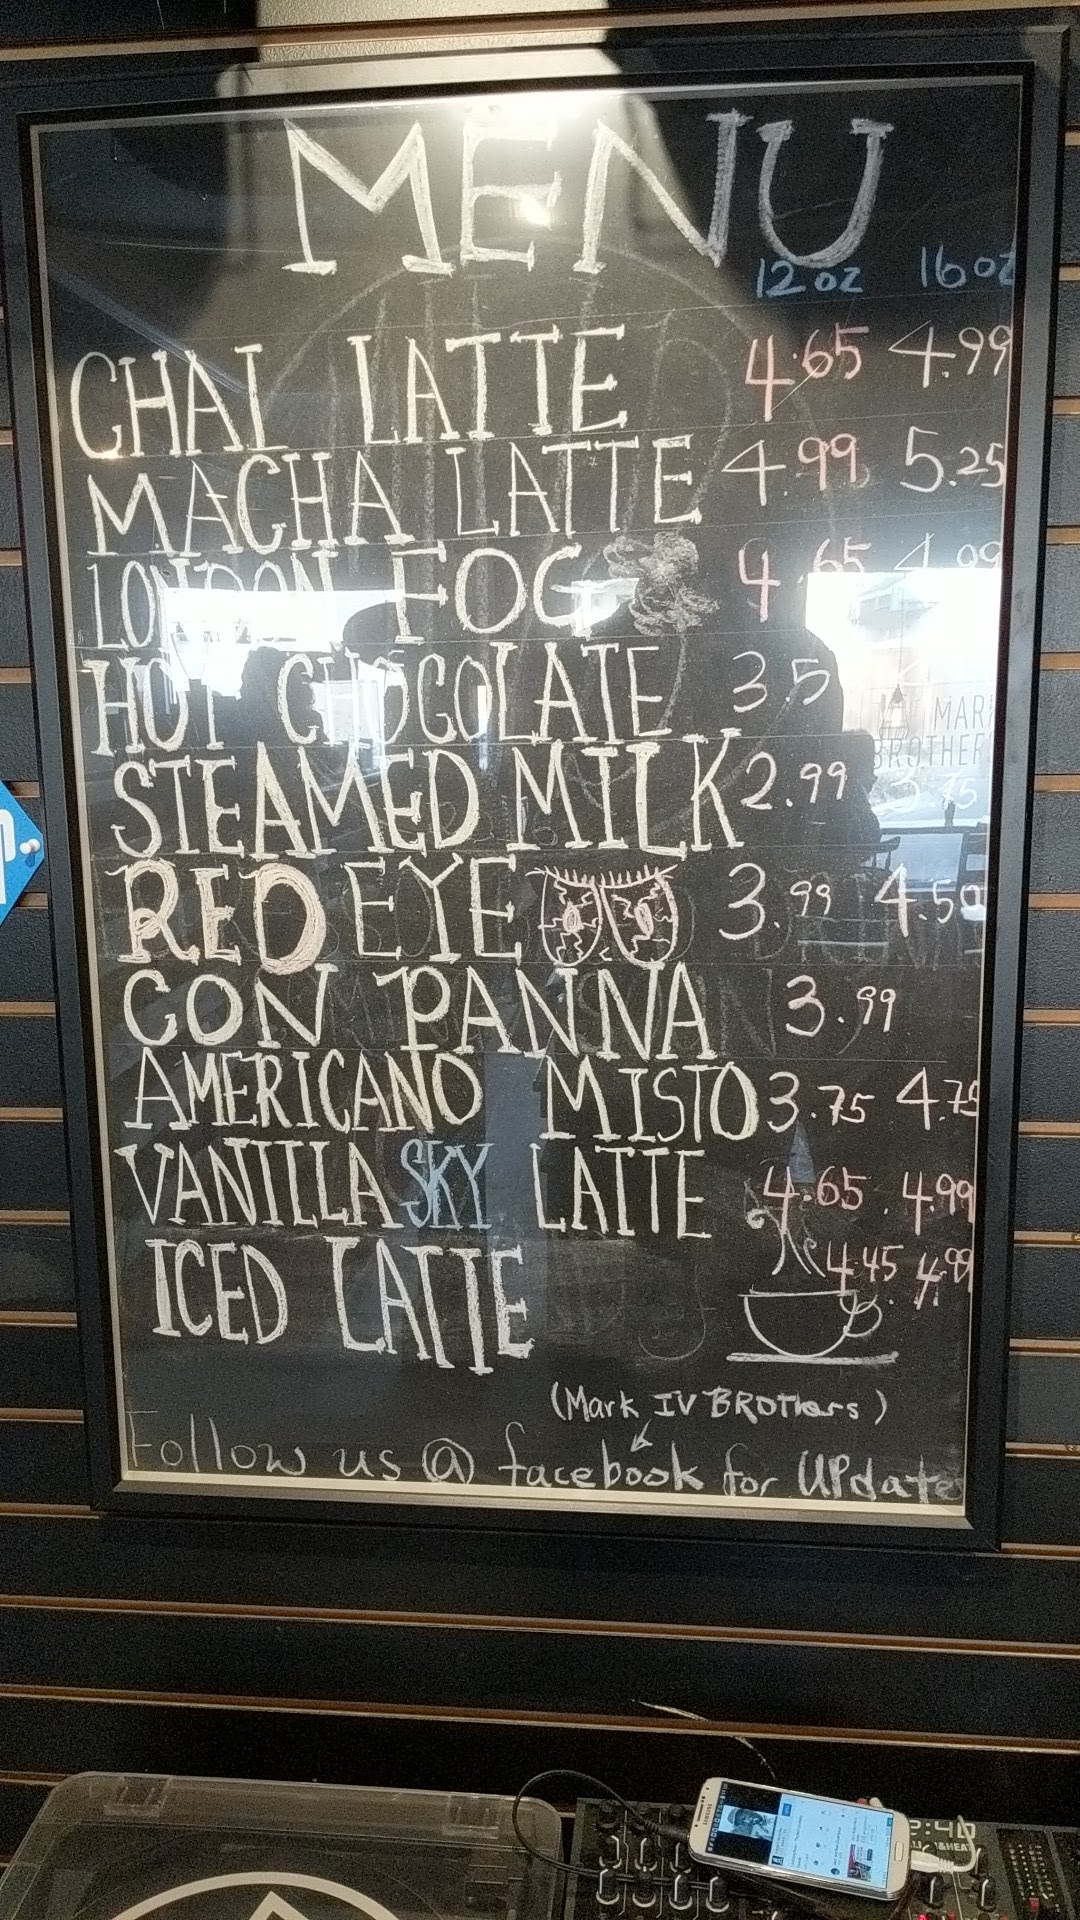 MENU
12 oz 16 oz
CHAI LATTE 4.65 4.99
MACHA LATTE 4.99 5.25
LONDON FOG 4.65 4.99
HOT CHOCOLATE 3.5
STEAMED MILK 2.99 3.75
RED EYE 3.99 4.50
CON PANNA 3.99
AMERICANO MISTO 3.75 4.75
VANILLA SKY LATTE 4.65 4.99
ICED LATTE 4.45 4.99
(Mark IV BROTHers)
Follow us @ facebook for UPdate
SAMSUNG